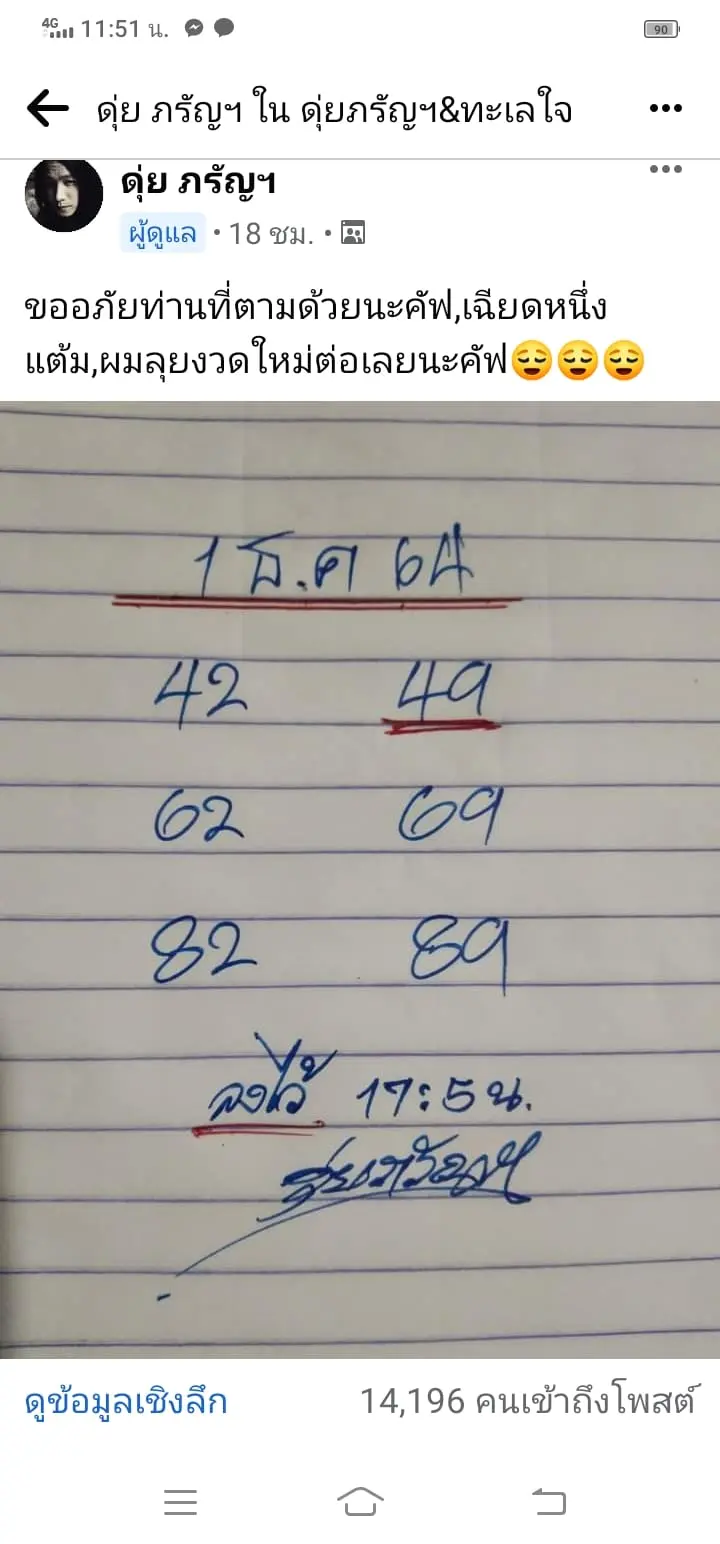 4G 11:51 น. 90
ดุ่ย ภรัญฯ ใน ดุ่ยภรัญฯ&ทะเลใจ
ดุ่ย ภรัญฯ
ผู้ดูแล • 18 ชม. •
ขออภัยท่านที่ตามด้วยนะคัฟ,เฉียดหนึ่ง
แต้ม,ผมลุยงวดใหม่ต่อเลยนะคัฟ😌😌😌
1 ธ.ค 64
42 49
62 69
82 89
ลงไว้ 17:5 น.
ดุ่ยภรัญฯ
ดูข้อมูลเชิงลึก 14,196 คนเข้าถึงโพสต์